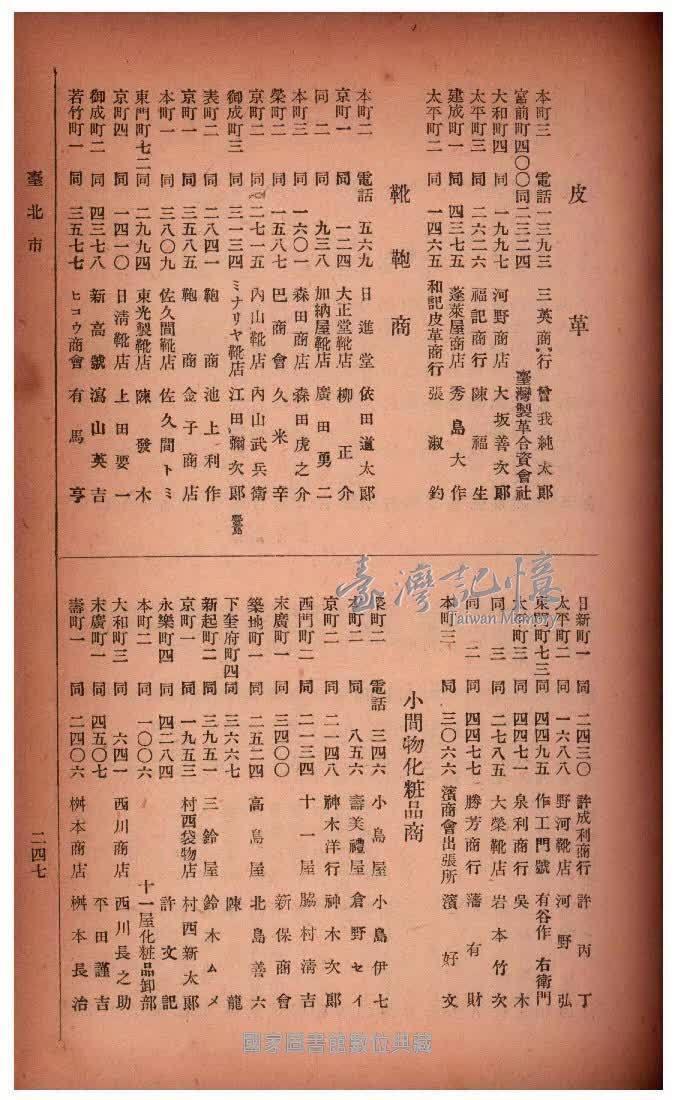 皮革
本町三 電話一三九三 三英商行 曾我純太郎
宮前町四〇〇同二三二四 臺灣製革合資會社
大和町四 同一九九七 河野商店 大坂善次郎
太平町三 同二六二六 福記商行 陳福生
建成町一 同四三七五 蓬萊屋商店 秀島大作
太平町二 同一四六五 和記皮革商行 張淑鈞
靴鞄商
本町二 電話五六九 日進堂 依田道太郎
京町一 同一二四 大正堂靴店 柳正介
同二 同九三八 加納屋靴店 廣田勇二
本町三 同一六〇一 森田商店 森田虎之介
榮町二 同一五八七 巴商會 久米幸
京町二 同二七一五 內山靴店 內山武兵衛
御成町三 同三一三四 ミナリヤ靴店 江田彌次郎
表町二 同二八四一 鞄商 池上利作
京町一 同三五八五 鞄商 金子商店
本町一 同三八〇九 佐久間靴店 佐久間トミ
東門町七二 同二九九四 東光製靴店 陳發木
京町四 同一四一〇 日清靴店 上田要一
御成町二 同四三七八 新高號 瀉山英吉
若竹町一 同三五七七 ヒコウ商會 有馬亨
臺北市
日新町一 同二四三〇 許成利商行 許丙丁
太平町二 同一六八八 野河靴店 河野弘
東門町七三 同四四九五 作工門號 有谷作右衛門
太平町三 同四四七一 泉利商行 吳木
同三 同二七八五 大榮靴店 岩本竹次
同二 同四四七七 勝芳商行 潘有財
本町三 同三〇六六 濱商會出張所 濱好文
小間物化粧品商
榮町二 電話三四六 小島屋 小島伊七
本町二 同八五六 壽美禮屋 倉野セイ
京町二 同二一四八 神木洋行 神木次郎
西門町二 同二一三四 十一屋 脇村清吉
末廣町一 同三四〇〇 新保商會
築地町一 同二五二四 高島屋 北島善六
下奎府町四 同三六六七 陳龍
新起町二 同三九五一 三鈴屋 鈴木ムメ
京町一 同一九五三 村西袋物店 村西新太郎
永樂町四 同四二八四 許文記
本町二 同一〇〇六 十一屋化粧品卸部
大和町三 同六四一 西川商店 西川長之助
末廣町一 同四五〇七 平田謹吉
壽町一 同二四〇六 桝本商店 桝本長治
二四七
臺灣記憶
Taiwan Memory
國家圖書館數位典藏